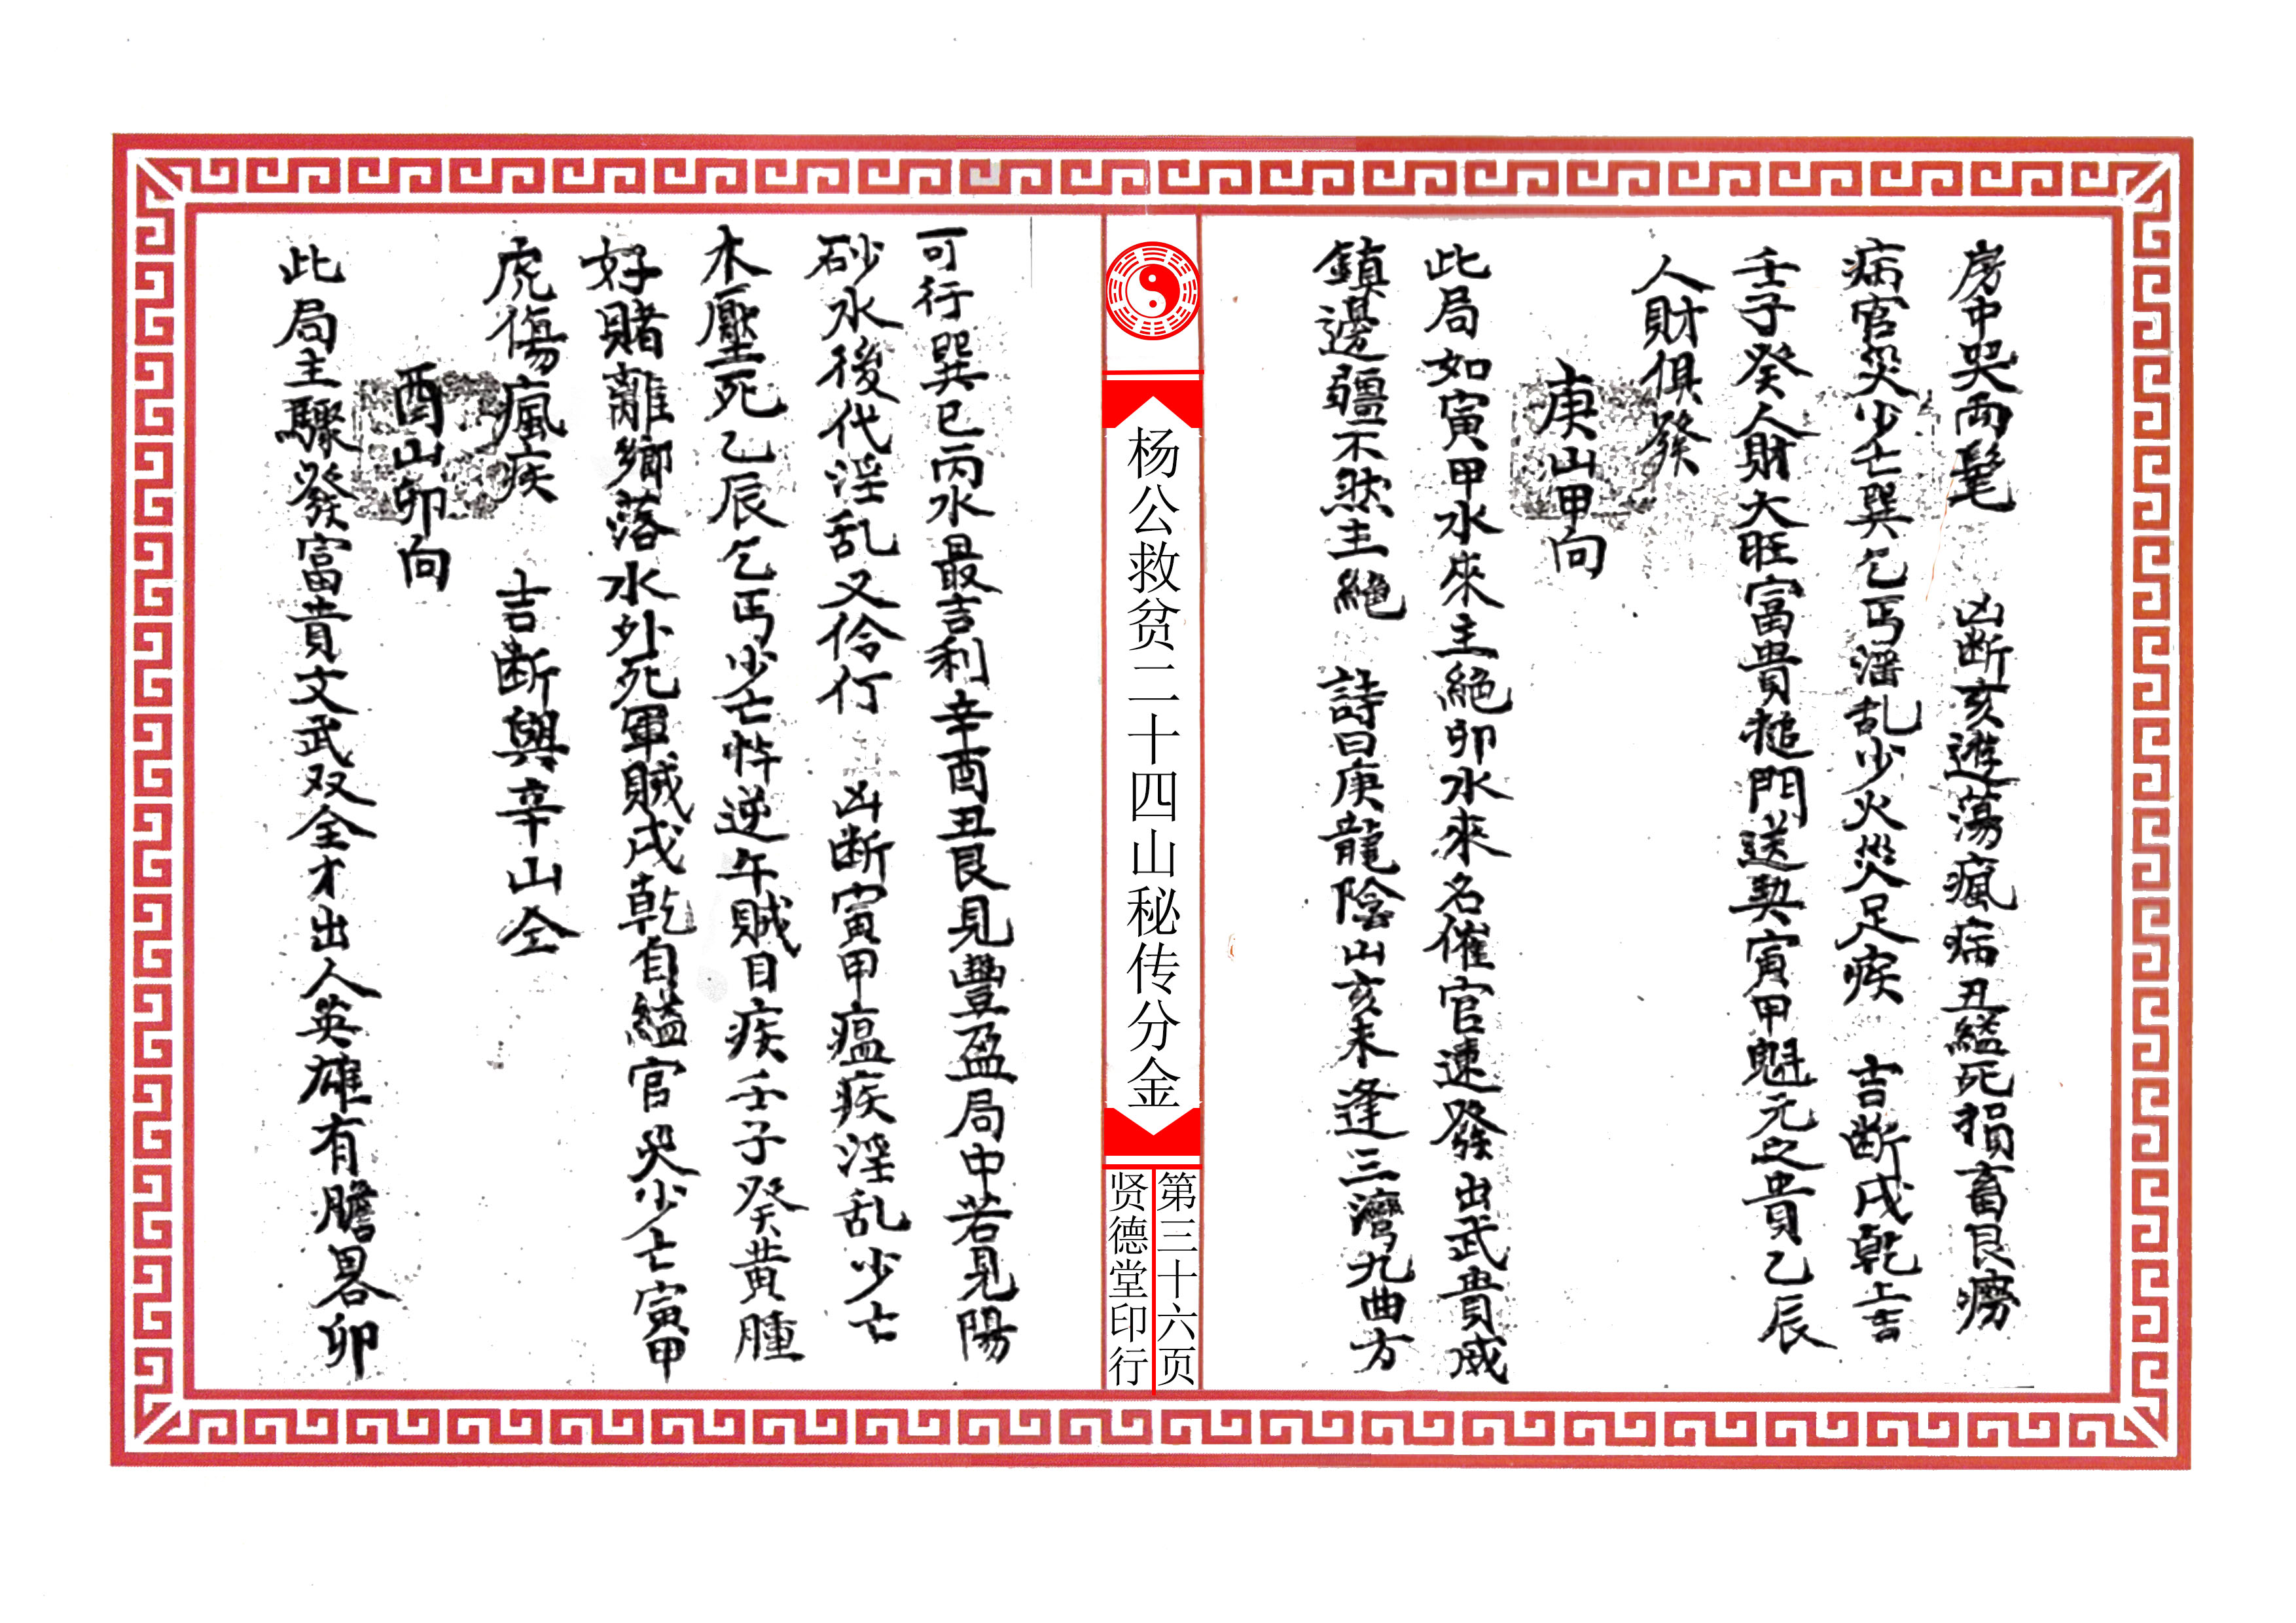 房中哭兩髦 凶断亥遊蕩瘋病丑縊死損畜艮癆
病官災少亡巽乞丐滛乱少火災足疾 吉断戌乾上吉
壬子癸人財大旺富貴搥門送契寅甲魁元之貴乙辰
人財俱發
庚山甲向
此局如寅甲水來主絕卯水來名催官速發出武貴威
鎮邊疆不然主絕 詩曰庚龍陰山亥未逢三灣九曲方
杨公救贫二十四山秘传分金
第三十六页
贤德堂印行
可行巽巳丙水最吉利辛酉丑艮見豐盈局中若見陽
砂水後代淫乱又伶仃 凶断寅甲瘟疾淫乱少亡
木壓死乙辰乞丐少亡忤逆午賊目疾壬子癸黄腫
好賭離鄉落水外死軍賊戌乾自縊官災少亡寅甲
虎傷瘋疾 吉断與辛山仝
酉山卯向
此局主驟發富貴文武双全才出人英雄有膽畧卯